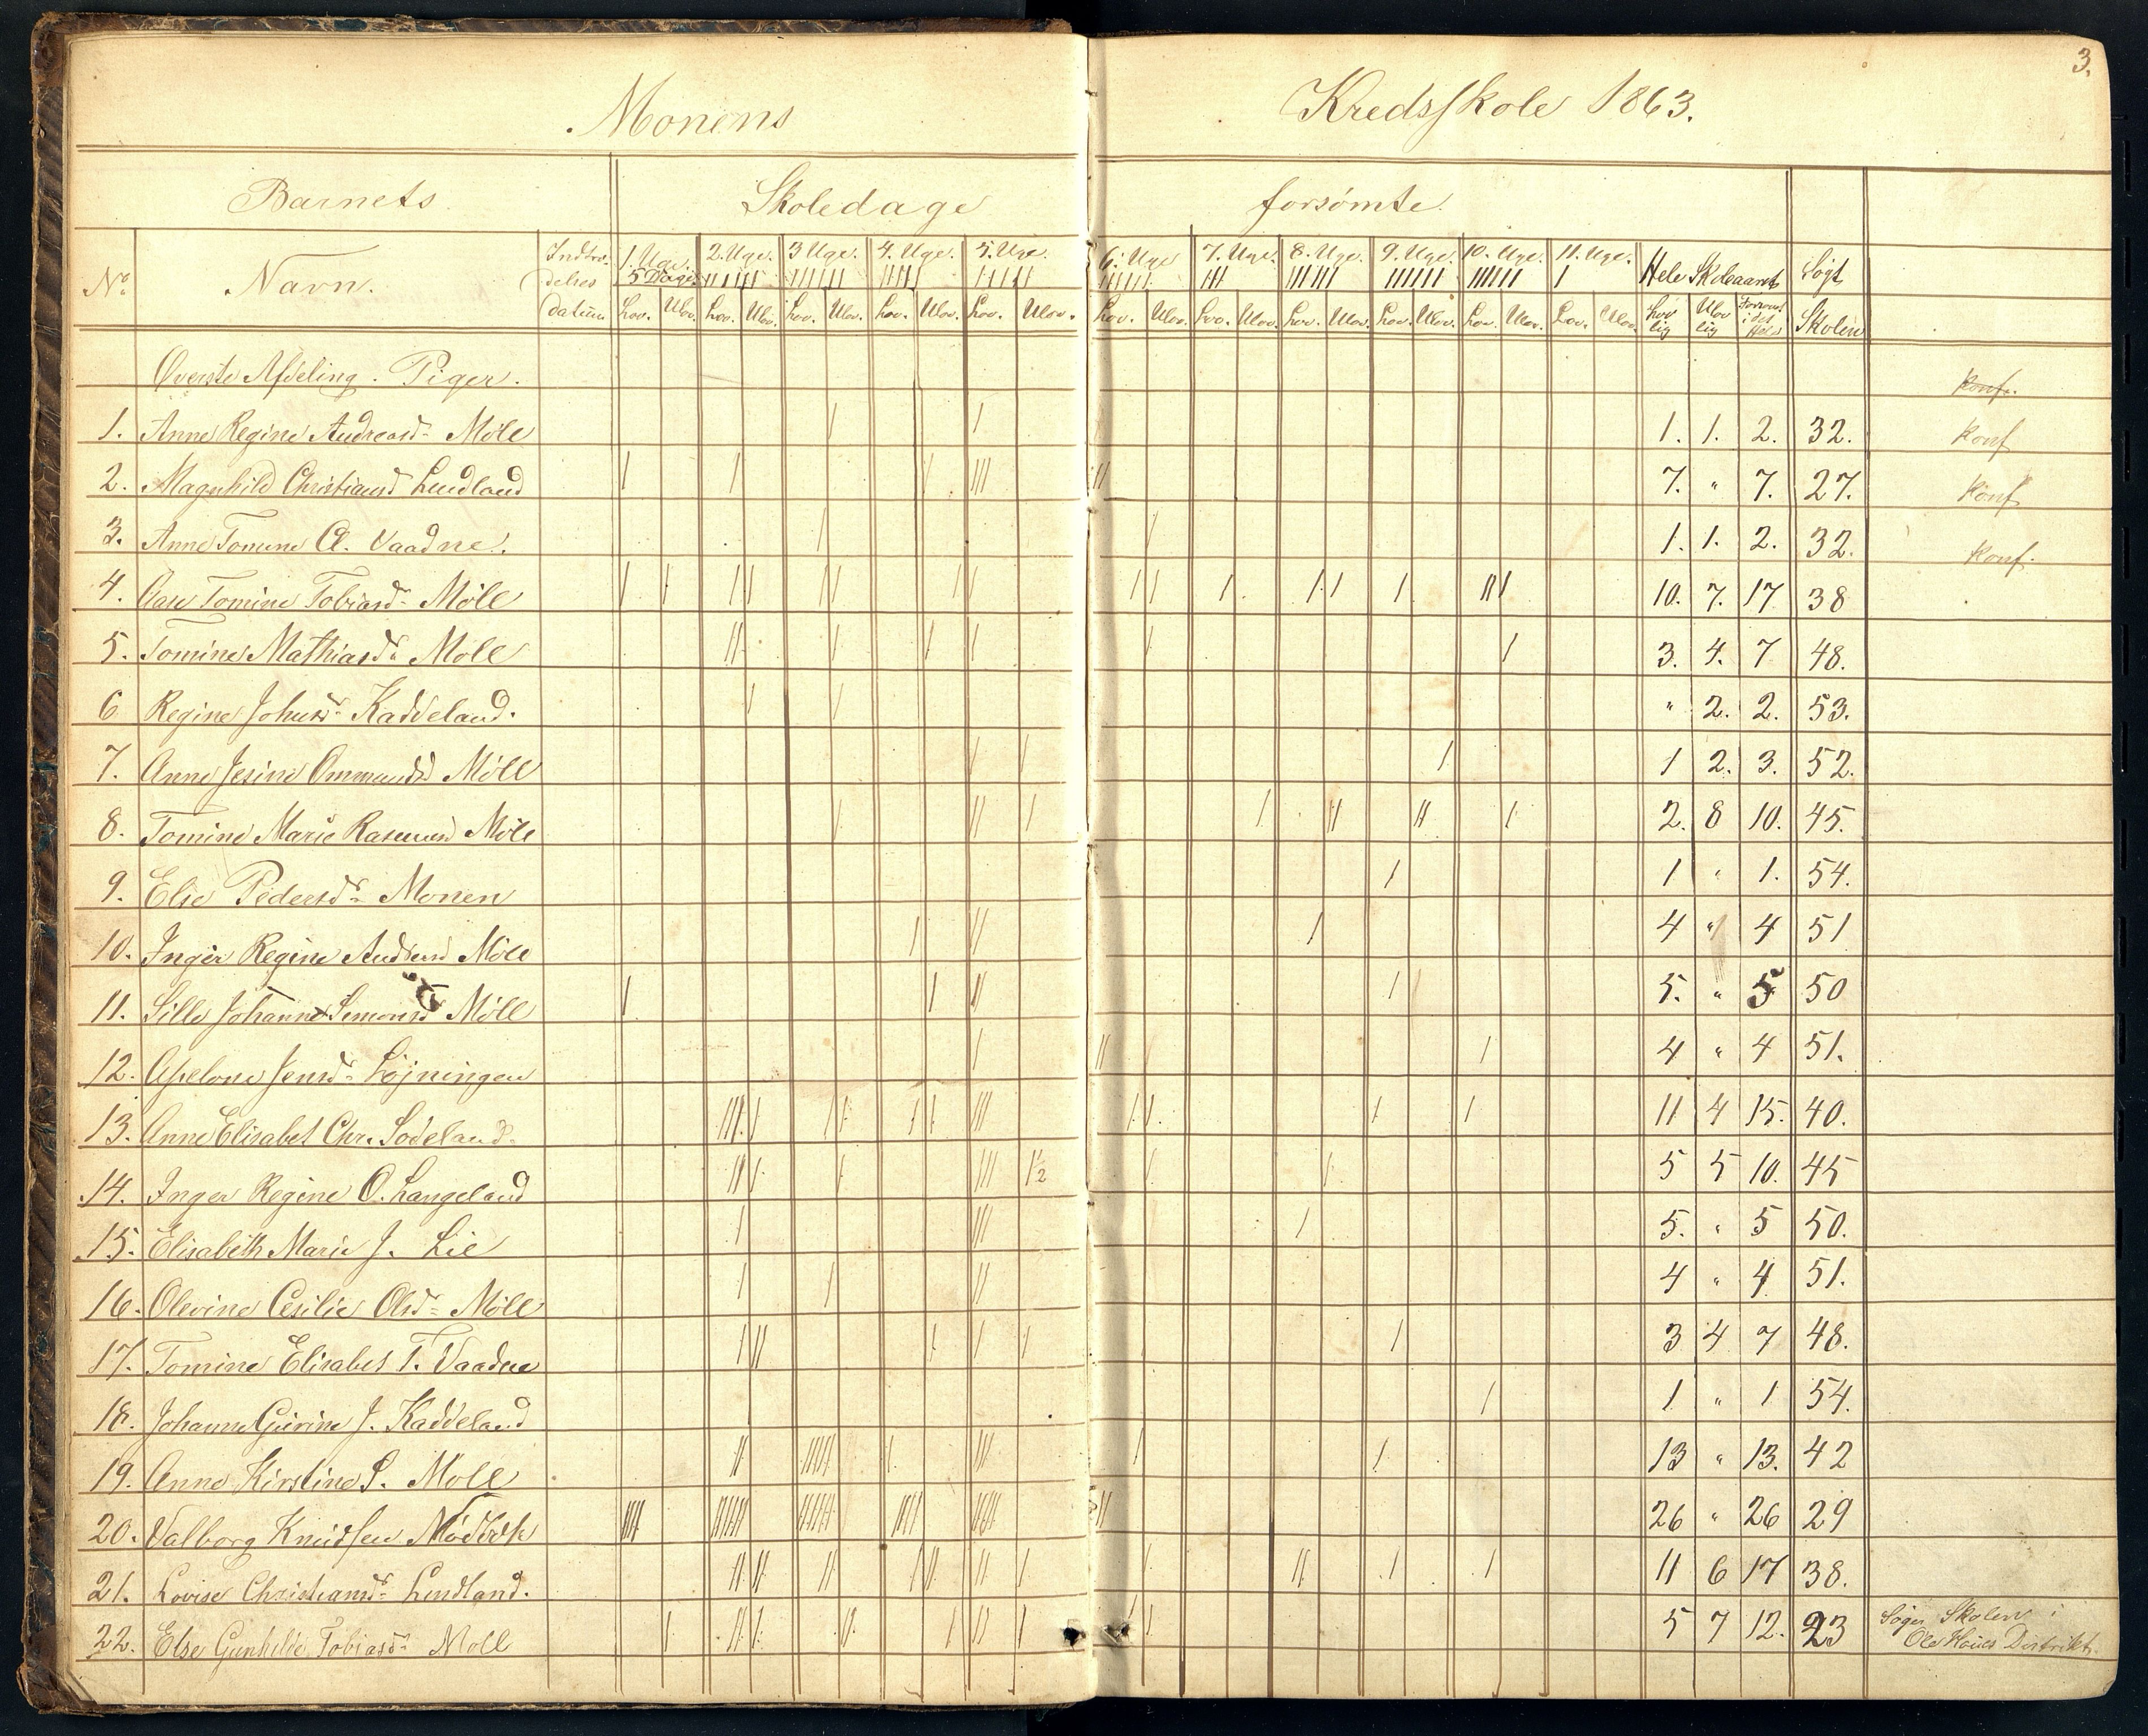 3.
Monens Kredsskole 1863.
Barnets Skoledage forsömte.
No. Navn. Indtræ-delses datum 1. Uge. 2. Uge. 3 Uge. 4. Uge. 5. Uge. 6. Uge 7. Uge. 8. Uge. 9. Uge. 10. Uge. 11. Uge. Hele Skoleaaret Sögt Skolen
5 Dage
Lov. Ulov. Lov. Ulov. Lov. Ulov. Lov. Ulov. Lov. Ulov. Lov. Ulov. Lov. Ulov. Lov. Ulov. Lov. Ulov. Lov. Ulov. Lov. Ulov. Lov lig Ulov lig i det Hele
Øverste Afdeling. Piger. Konf.
1. Anne Regine Andreasd. Möll 1. 1. 2. 32. Konf
2. Magnhild Christiansd Lindland 7. " 7. 27. Konf
3. Anne Tomine A. Vaadne. 1. 1. 2. 32. Konf.
4. Aase Tomine Tobiasd. Möll 10. 7. 17 38
5. Tomine Mathiasd. Möll 3. 4. 7 48.
6 Regine Johnsd. Kaddeland. " 2. 2. 53.
7. Anne Jesine Ommundsd Möll 1 2. 3. 52.
8. Tomine Marie Rasmusd Möll 2. 8 10. 45.
9. Elie Pedersd. Monen 1 " 1. 54.
10. Inger Regine Möll 4 " 4 51
11. Sille Johanne Simonsd Möll 5. " 5 50
12. Apelone Jensd. Löjningen 4 " 4 51.
13. Anne Elisabet Chr. Sodeland. 11 4 15. 40.
14. Inger Regine O. Langeland ½ 5 5 10. 45
15. Elisabeth Marie J. Lie 5. " 5 50.
16. Olevine Cesilie Olsd. Möll 4 " 4 51.
17. Tomine Elisabet T. Vaadne 3 4 7 48.
18. Johanne Gurine J. Kaddeland 1 " 1 54.
19. Anne Kirstine S. Möll 13 " 13. 42
20. Valborg Knudsen 26 " 26 29
21. Lovise Christiansd. Lindland. 11 6 17 38.
22. Else Gunhilde Tobiasd. Moll 5 7 12. 23 Söger Skolen i
Ole Distrikt.